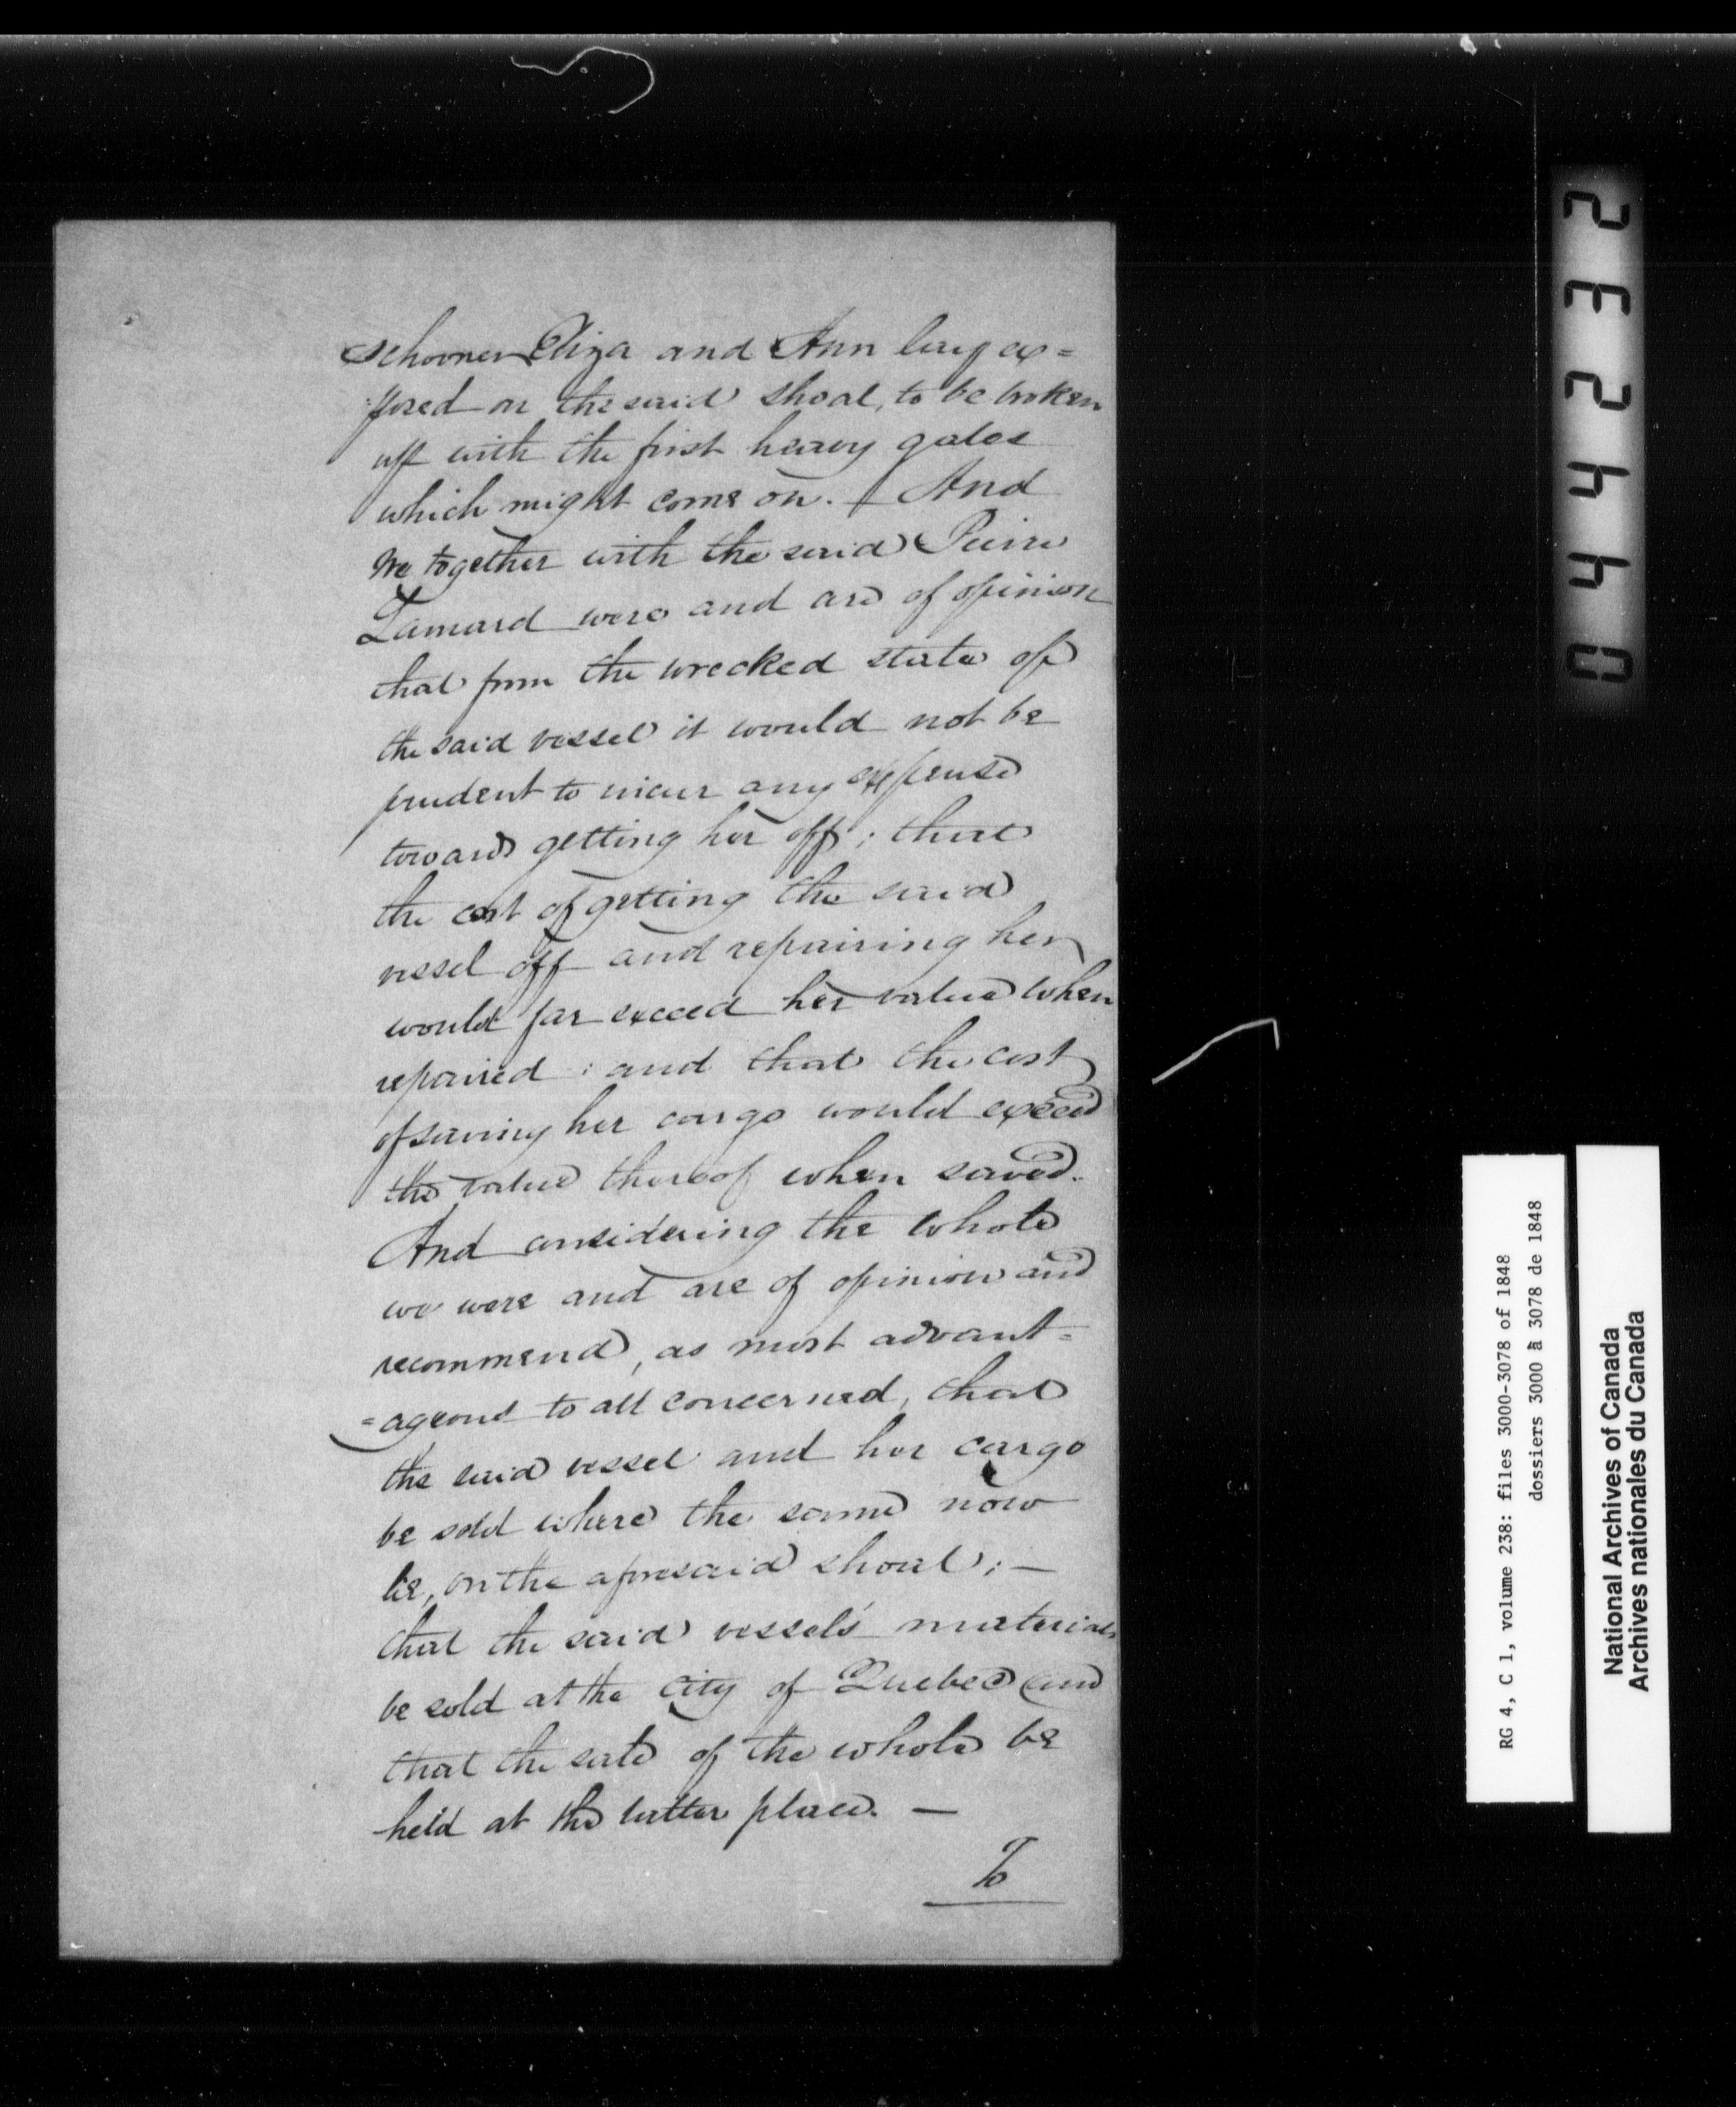 schooner Eliza and Ann lay ex=
posed on the said shoal, to be broken
up with the first heavy gales
which might come on. And
we together with the said Peirre
Lamard were and are of opinion
that from the wrecked state of
the said vessel it would not be
prudent to incur any expense
toward getting her off; that
the cost of getting the said
vessel off and repairing her
would far exceed her value when
repaired: and that the cost
of saving her cargo would exceed
the value thereof when saved.
And considering the whole
we were and are of opinion and
recommend, as most advant=
=ageous to all concerned, that
the said vessel and her cargo
be sold where the same now
lie, on the aforesaid shoal; —
that the said vessel's materials
be sold at the City of Quebec and
that the sale of the whole be
held at the latter place. —
To
23244 0
RG 4, C 1, volume 238: files 3000-3078 of 1848
dossiers 3000 à 3078 de 1848
National Archives of Canada
Archives nationales du Canada